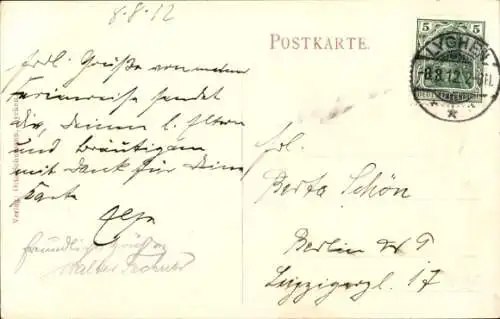 8./8.12
POSTKARTE.
5 5
LYCHEN
8.8.12.
Frdl. Grüße von meiner
Ferienreise sendet
dir, deinen l. Eltern
und Bräutigam
mit Dank für Deine
Karte
Elsa
freundliche Grüße
Walter
Frl.
Berta Schön
Berlin
Leipzigerpl. 17
Verlag